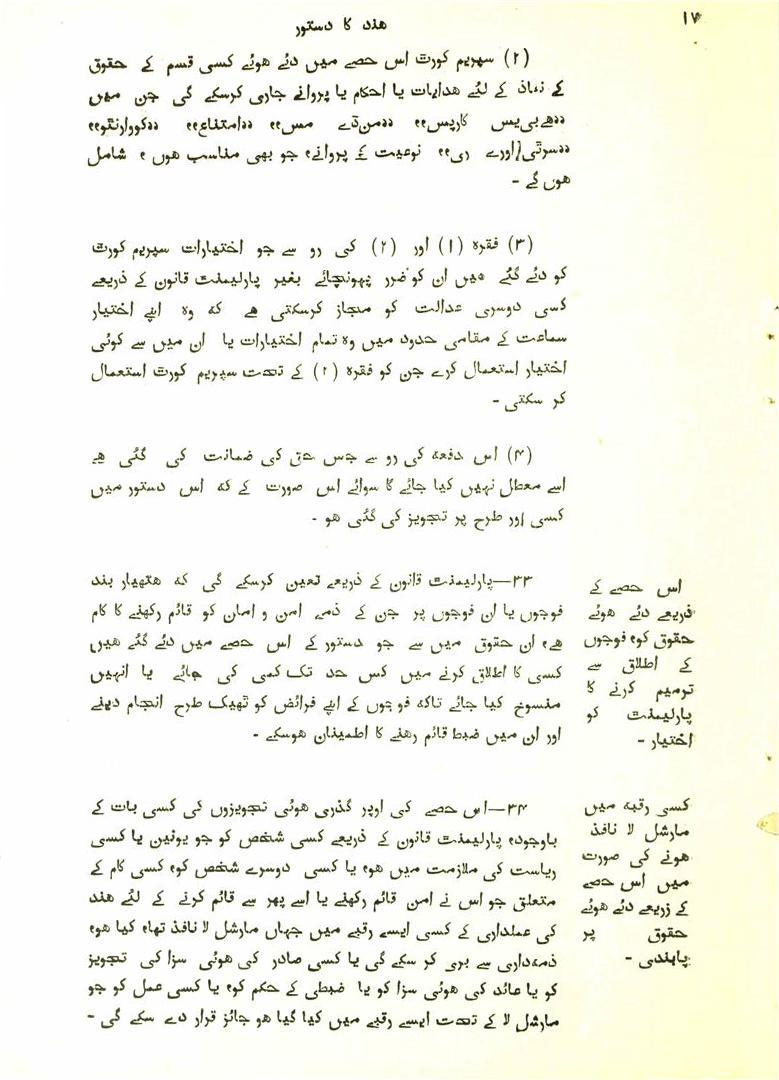 ۱۷
ھند کا دستور
(۲) سپریم کورٹ اس حصے میں دئے ھوئے کسی قسم کے حقوق
کے نفاذ کے لئے ھدایات یا احکام یا پروانے جاری کرسکے گی جن میں
,,ھےبی‌یس کارپس،، ,,من‌ڈے مس،، ,,امتناع،، ,,کووارنٹو،،
,,سرٹی/اورے ری،، نوعیت کے پروانے، جو بھی مناسب ھوں، شامل
ھوں گے -
(۳) فقرہ (۱) اور (۲) کی رو سے جو اختیارات سپریم کورٹ
کو دئے گئے ھیں ان کو ضرر پہونچائے بغیر پارلیمنٹ قانون کے ذریعے
کسی دوسری عدالت کو مجاز کرسکتی ھے که وہ اپنے اختیار
سماعت کے مقامی حدود میں وہ تمام اختیارات یا ان میں سے کوئی
اختیار استعمال کرے جن کو فقرہ (۲) کے تحت سپریم کورٹ استعمال
کر سکتی -
(۴) اس دفعه کی رو سے جس حق کی ضمانت کی گئی ھے
اسے معطل نہیں کیا جائے گا سوائے اس صورت کے که اس دستور میں
کسی اور طرح پر تجویز کی گئی ھو -
اس حصے کے
ذریعے دئے ھوئے
حقوق کو، فوجوں
کے اطلاق سے
ترمیم کرنے کا
پارلیمنٹ کو
اختیار -
۳۳—پارلیمنٹ قانون کے ذریعے تعین کرسکے گی که ھتھیار بند
فوجوں یا ان فوجوں پر جن کے ذمے امن و امان کو قائم رکھنے کا کام
ھے، ان حقوق میں سے جو دستور کے اس حصے میں دئے گئے ھیں
کسی کا اطلاق کرنے میں کس حد تک کمی کی جائے یا انہیں
منسوخ کیا جائے تاکه فوجوں کے اپنے فرائض کو ٹھیک طرح انجام دینے
اور ان میں ضبط قائم رھنے کا اطمینان ھوسکے -
کسی رقبه میں
مارشل لا نافذ
ھونے کی صورت
میں اس حصے
کے زریعے دئے ھوئے
حقوق پر
پابندی -
۳۴—اس حصے کی اوپر گذری ھوئی تجویزوں کی کسی بات کے
باوجود، پارلیمنٹ قانون کے ذریعے کسی شخص کو جو یونین یا کسی
ریاست کی ملازمت میں ھو، یا کسی دوسرے شخص کو، کسی کام کے
متعلق جو اس نے امن قائم رکھنے یا اسے پھر سے قائم کرنے کے لئے ھند
کی عملداری کے کسی ایسے رقبے میں جہاں مارشل لا نافذ تھا، کیا ھو،
ذمه‌داری سے بری کر سکے گی یا کسی صادر کی ھوئی سزا کی تجویز
کو یا عائد کی ھوئی سزا کو یا ضبطی کے حکم کو، یا کسی عمل کو جو
مارشل لا کے تحت ایسے رقبے میں کیا گیا ھو جائز قرار دے سکے گی -